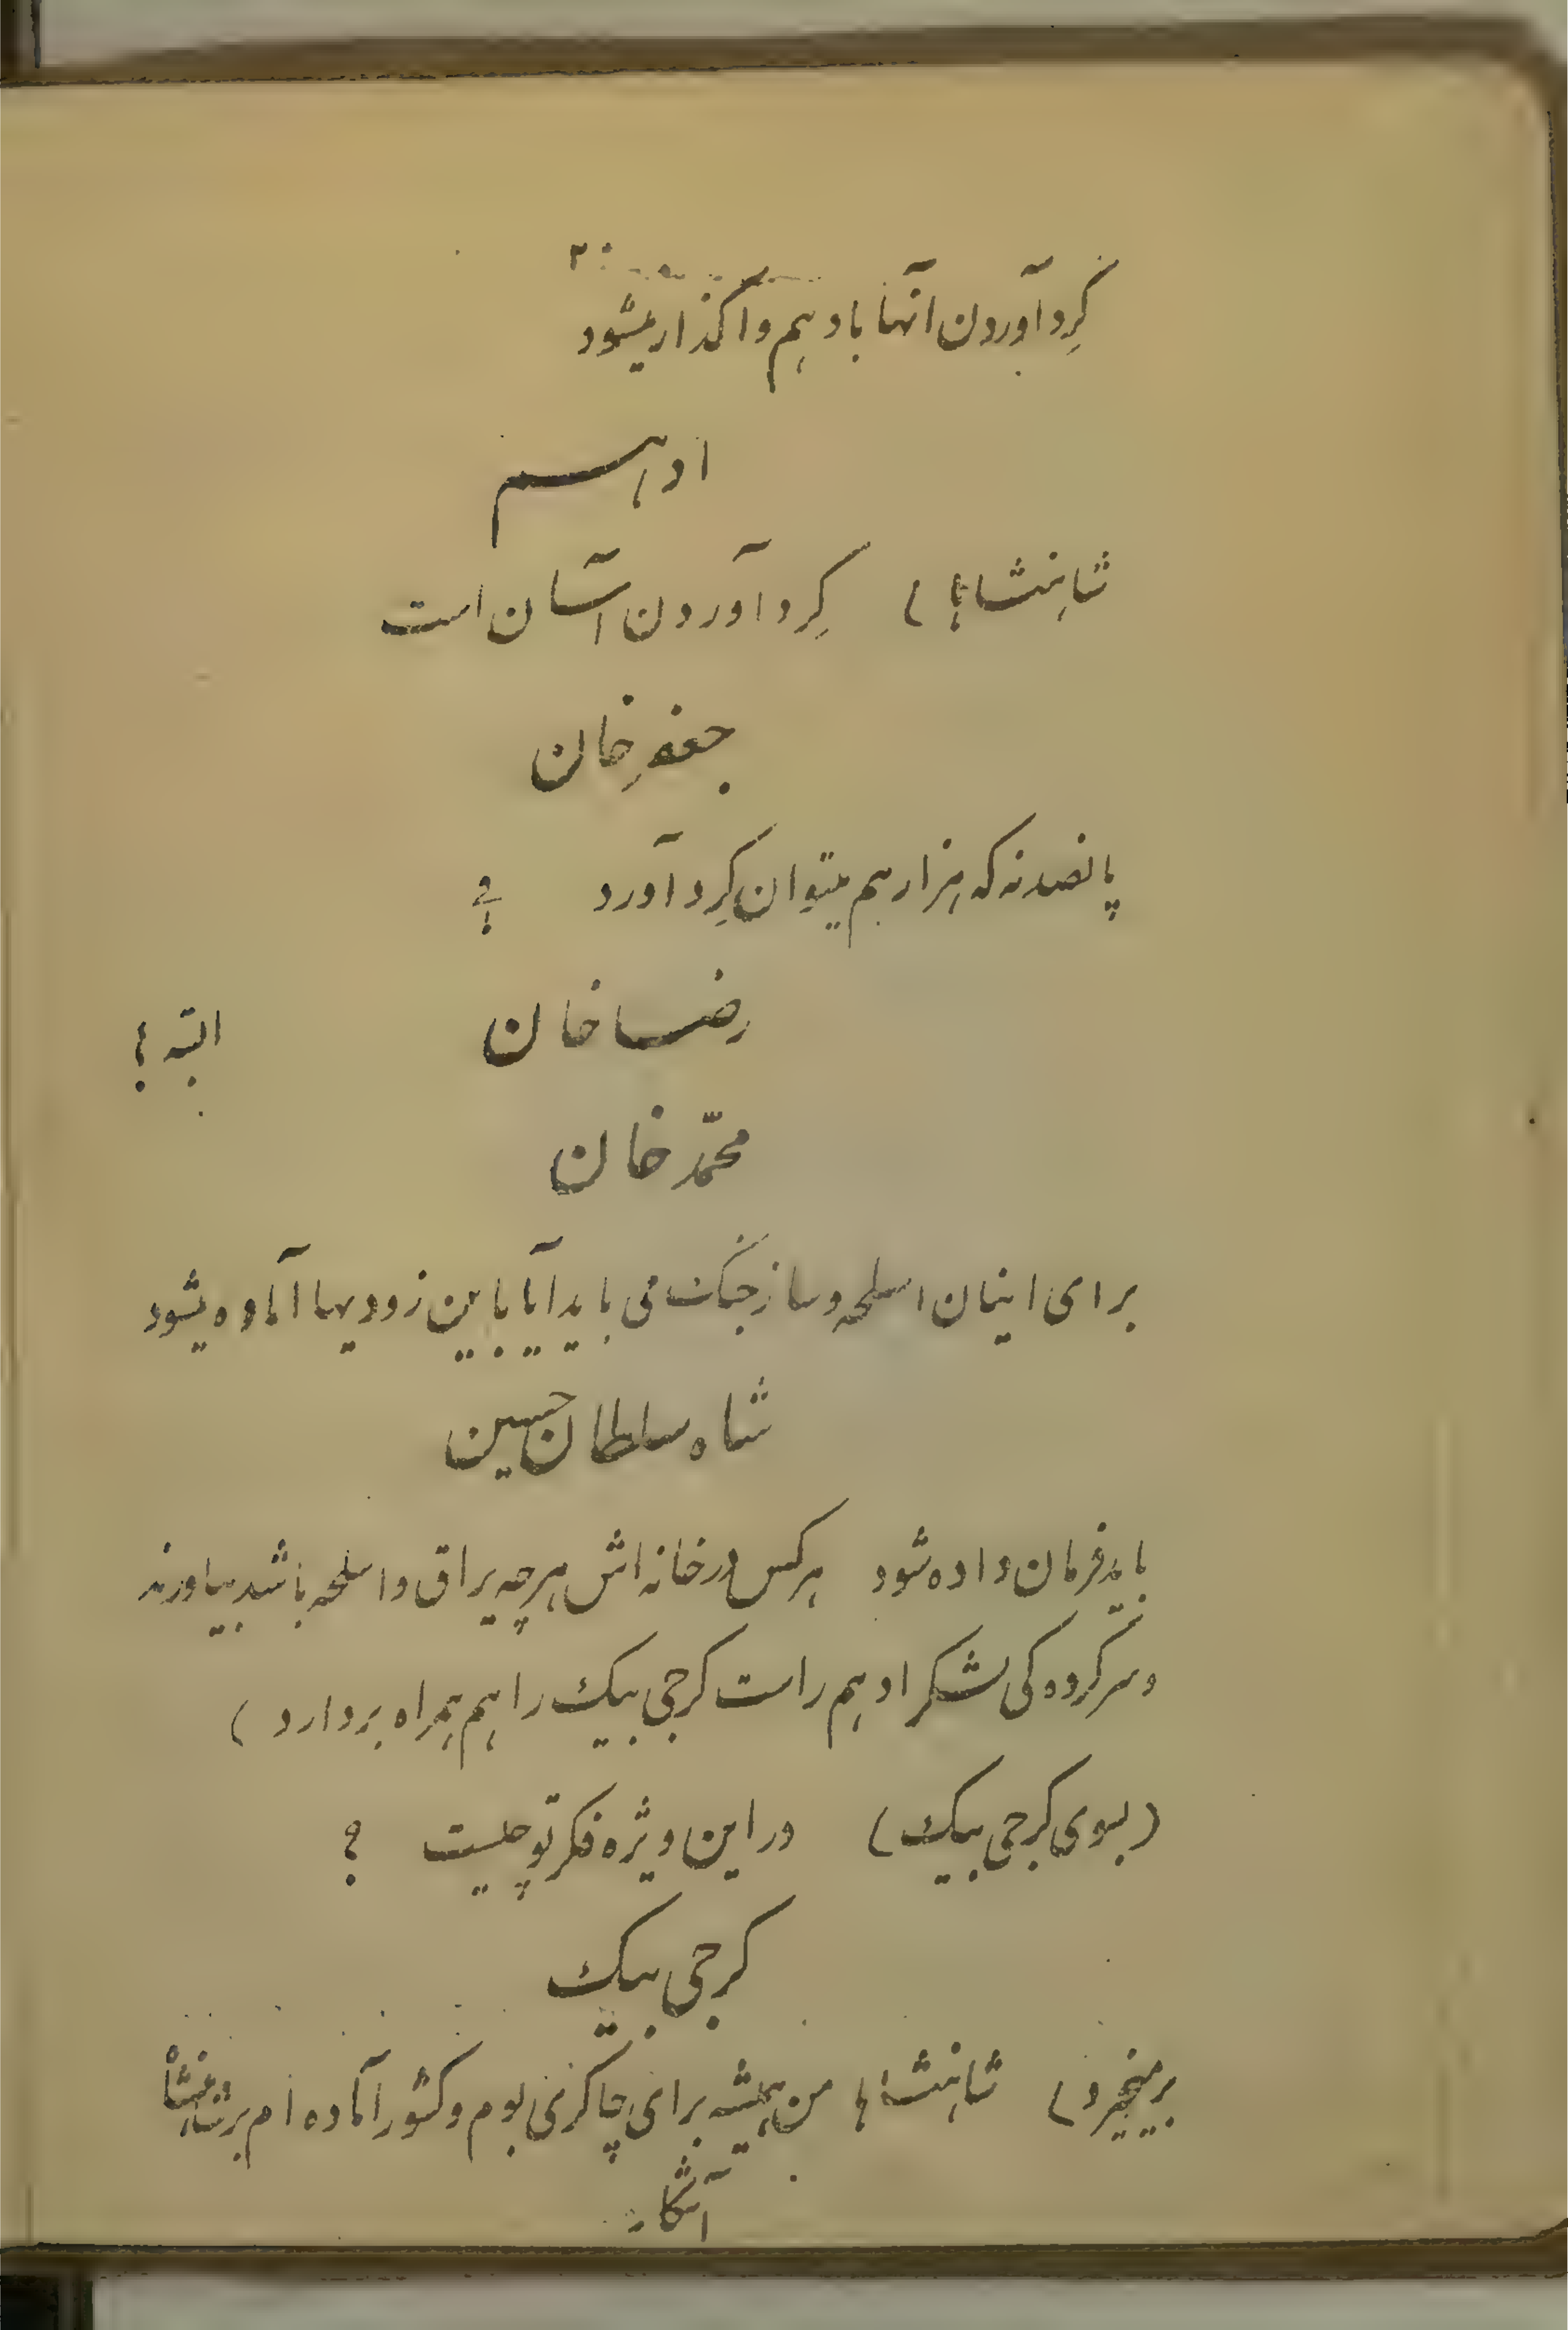 گِرد آوردن آنها بادهم واگذار میشود
ادهم
شاهنشاها ) گِرد آوردن آسان است
جعفرخان
پانصد نه که هزار هم میتوان گِرد آورد ؟
رضا خان
البته !
محمّد خان
برای اینان اسلحه و ساز جنگ می باید آیا باین زودیها آماده میشود
شاه سلطان حسین
باید فرمان داده شود هرکس در خانه اش هرچه یراق و اسلحه باشد بیاورند
و سرکرده کی لشکر ادهم راست کرجی بیک را هم همراه بردارد )
(بسوی کرجی بیک) در این ویژه فکر تو چیست ؟
کرجی بیک
برمیخیزد ) شاهنشاها من همیشه برای چاکری بوم و کشور آماده ام بر شاهنشاه
آشکار